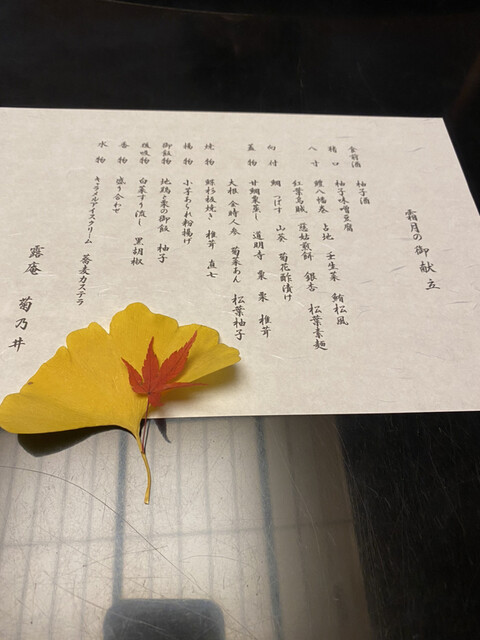 霜月の御献立
食前酒 柚子酒
猪口 柚子味噌豆腐
八寸 鱧八幡巻 占地 壬生菜 鮪松風
紅葉烏賊 慈姑煎餅 銀杏 松葉素麺
向付 鯛 つばす 山葵 菊花酢漬け
蓋物 甘鯛粟蒸し 道明寺 粟 栗 椎茸
大根 金時人参 菊菜あん 松葉柚子
焼物 鰆杉板焼き 椎茸 直七
揚物 小芋あられ粉揚げ
御飯物 地鶏と栗の御飯 柚子
後吸物 白菜すり流し 黒胡椒
香物 盛り合わせ
水物 キャラメルアイスクリーム 蕎麦カステラ
露庵 菊乃井